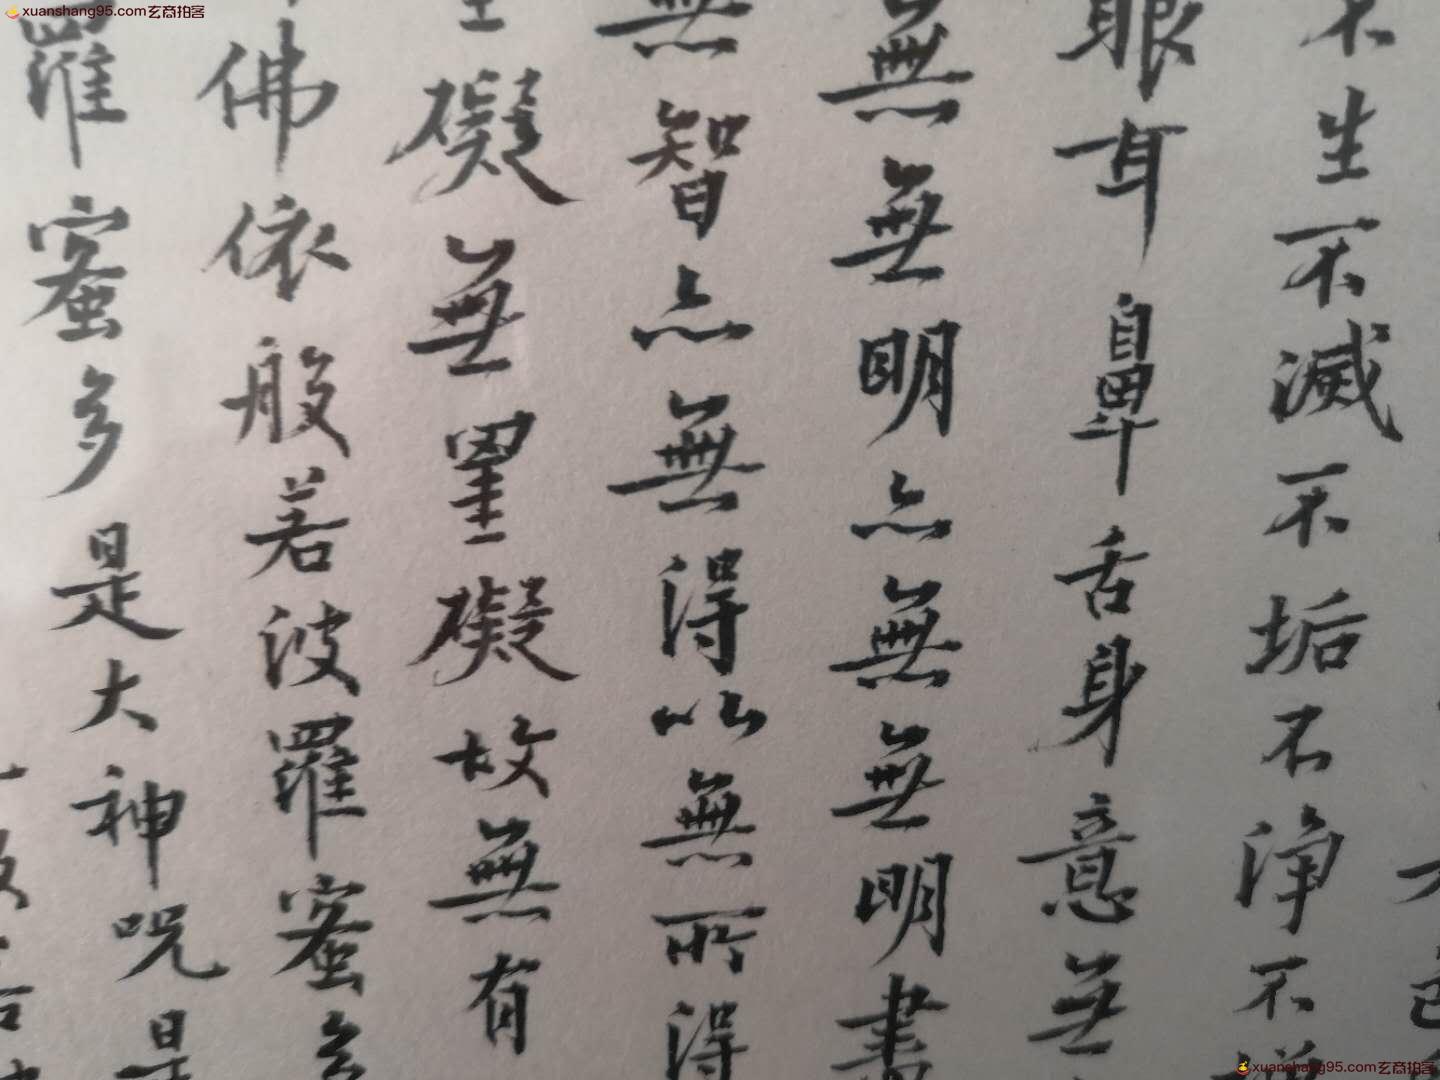 xuanshang95.com玄商拍客
不生不滅不垢不浄不增
眼耳鼻舌身意無
無無明亦無無明盡
無智亦無得以無所得
礙無罣礙故無有
佛依般若波羅蜜多
羅蜜多是大神咒是
xuanshang95.com玄商拍客